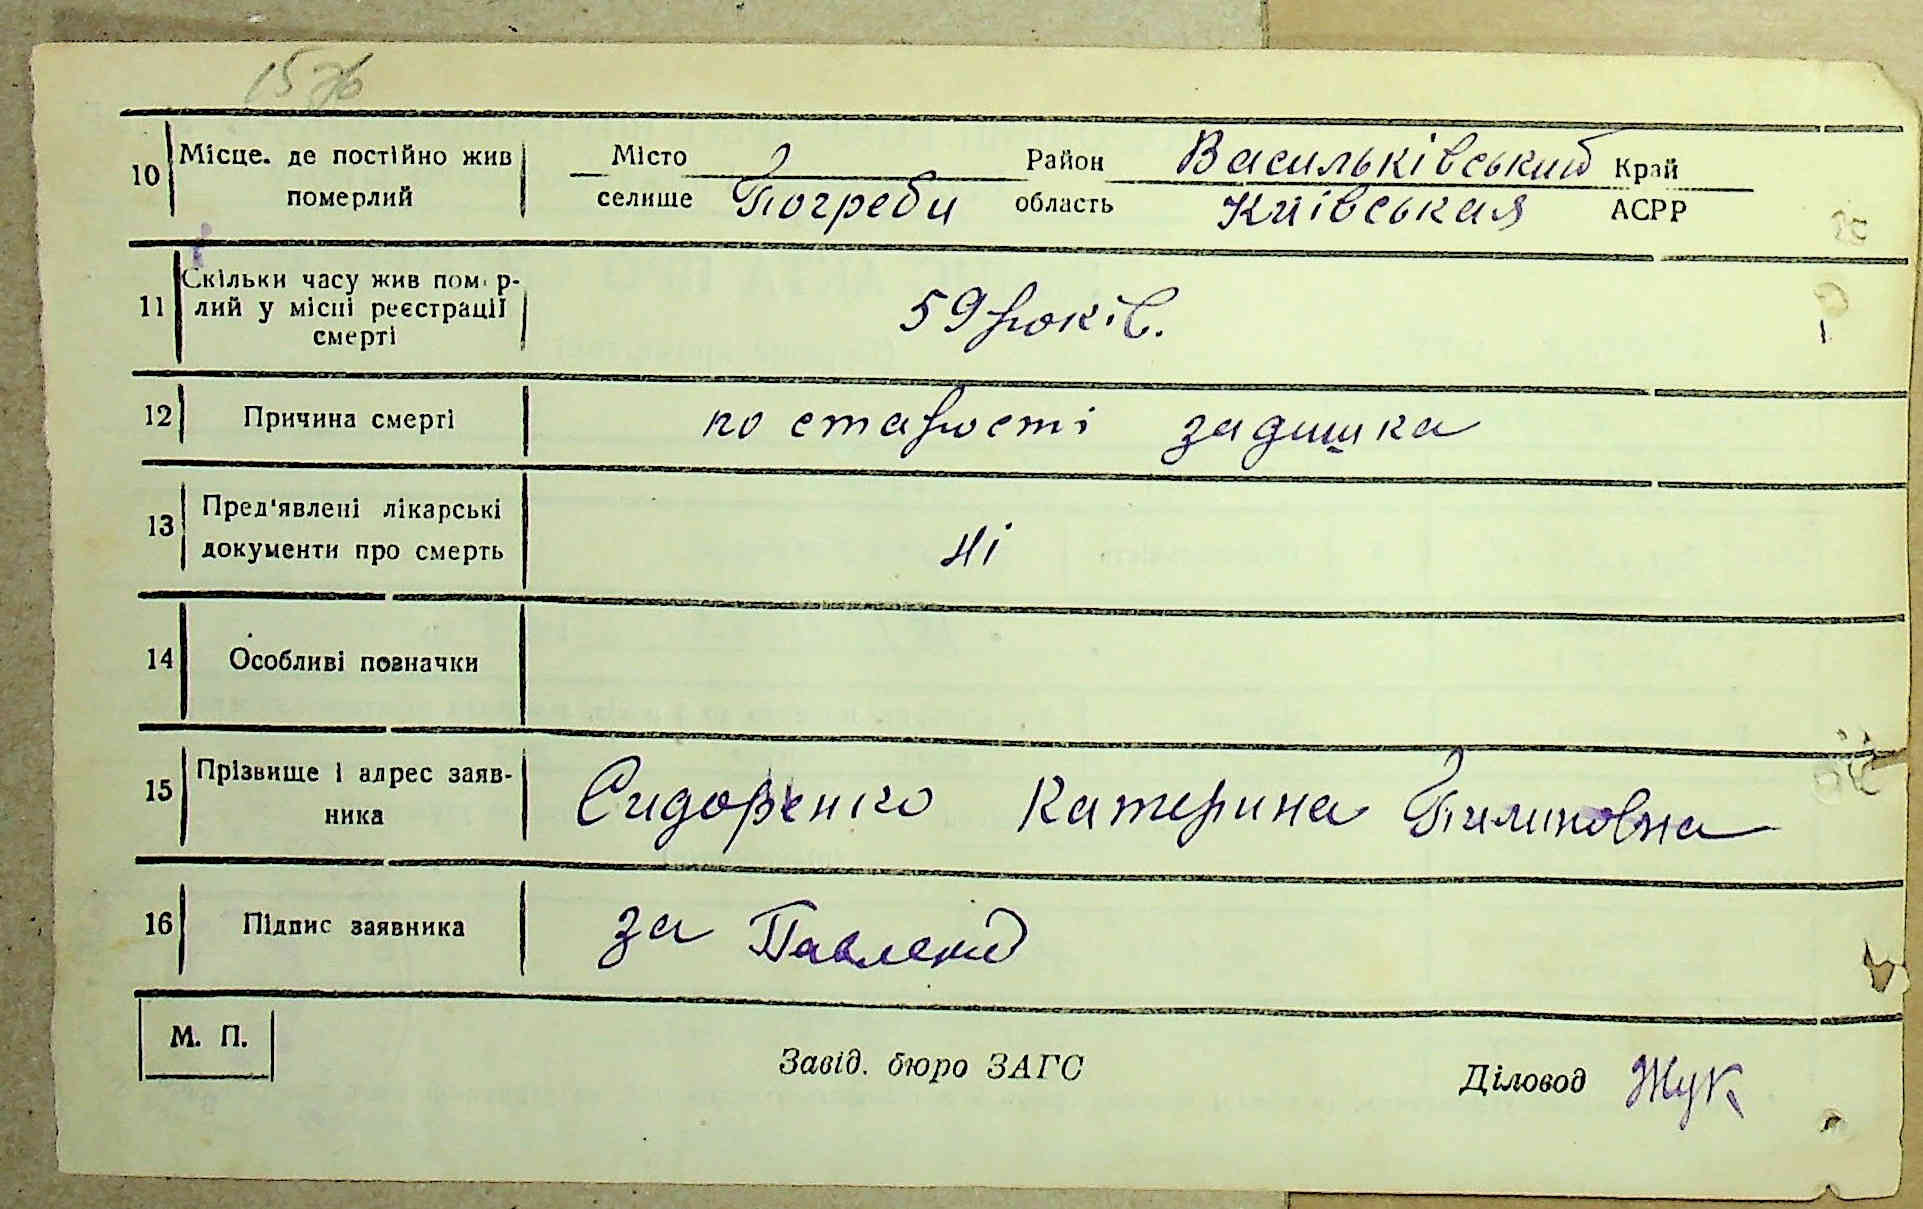 15 зв
10 Місце. де постійно жив Місто Район Васильківський Край
померлий селище Погреби область Київськая АСРР
11 Скільки часу жив помер-
лий у місці реєстрації 59 років.
смерті
12 Причина смерті по старості задишка
13 Пред'явлені лікарські
документи про смерть ні
14 Особливі позначки
15 Прізвище і адрес заяв-
ника Сидоренко Катерина Пилиповна
16 Підпис заявника за
М. П.
Завід. бюро ЗАГС Діловод Жук